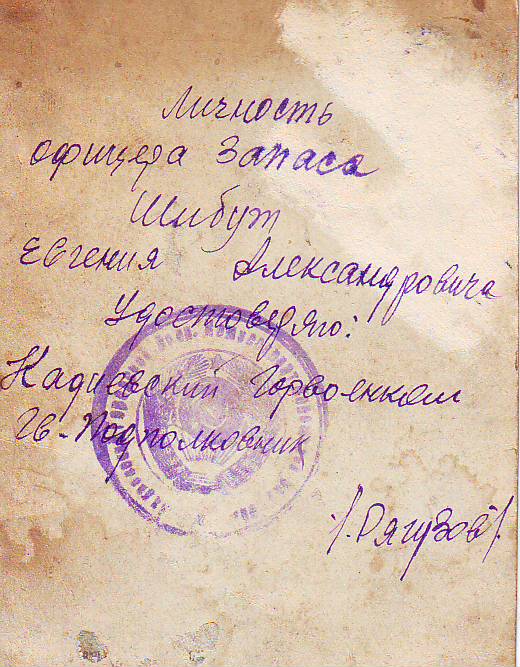 Личность
офицера Запаса
Шибуж
Евгения Александровича
Удостоверяю:
Кадиевский Горвоенком
Гв-Подполковник
/.Рягузов/.